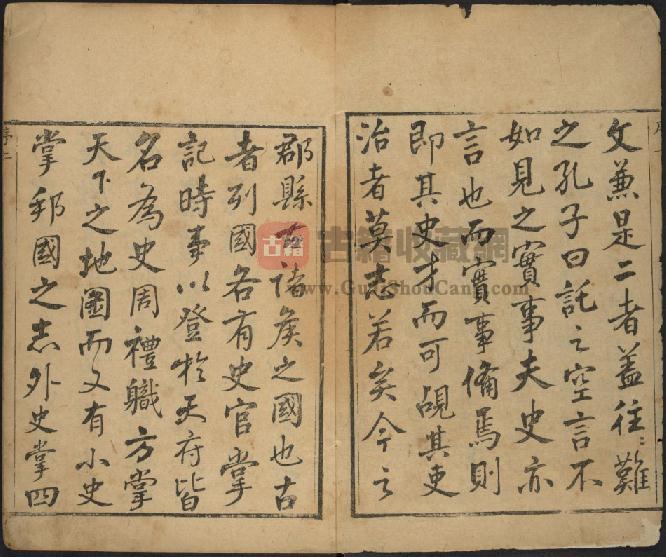 文兼是二者蓋往〻難
之孔子曰託之空言不
如見之實事夫史亦
言也而實事備焉則
即其史才而可覘其吏
治者莫志若矣今之
郡縣古諸侯之國也古
者列國各有史官掌
記時事以登於天府皆
名為史周禮職方掌
天下之地圖而又有小史
掌邦國之志外史掌四
序二
古籍 古籍收藏網
www.GuJiShouCang.com